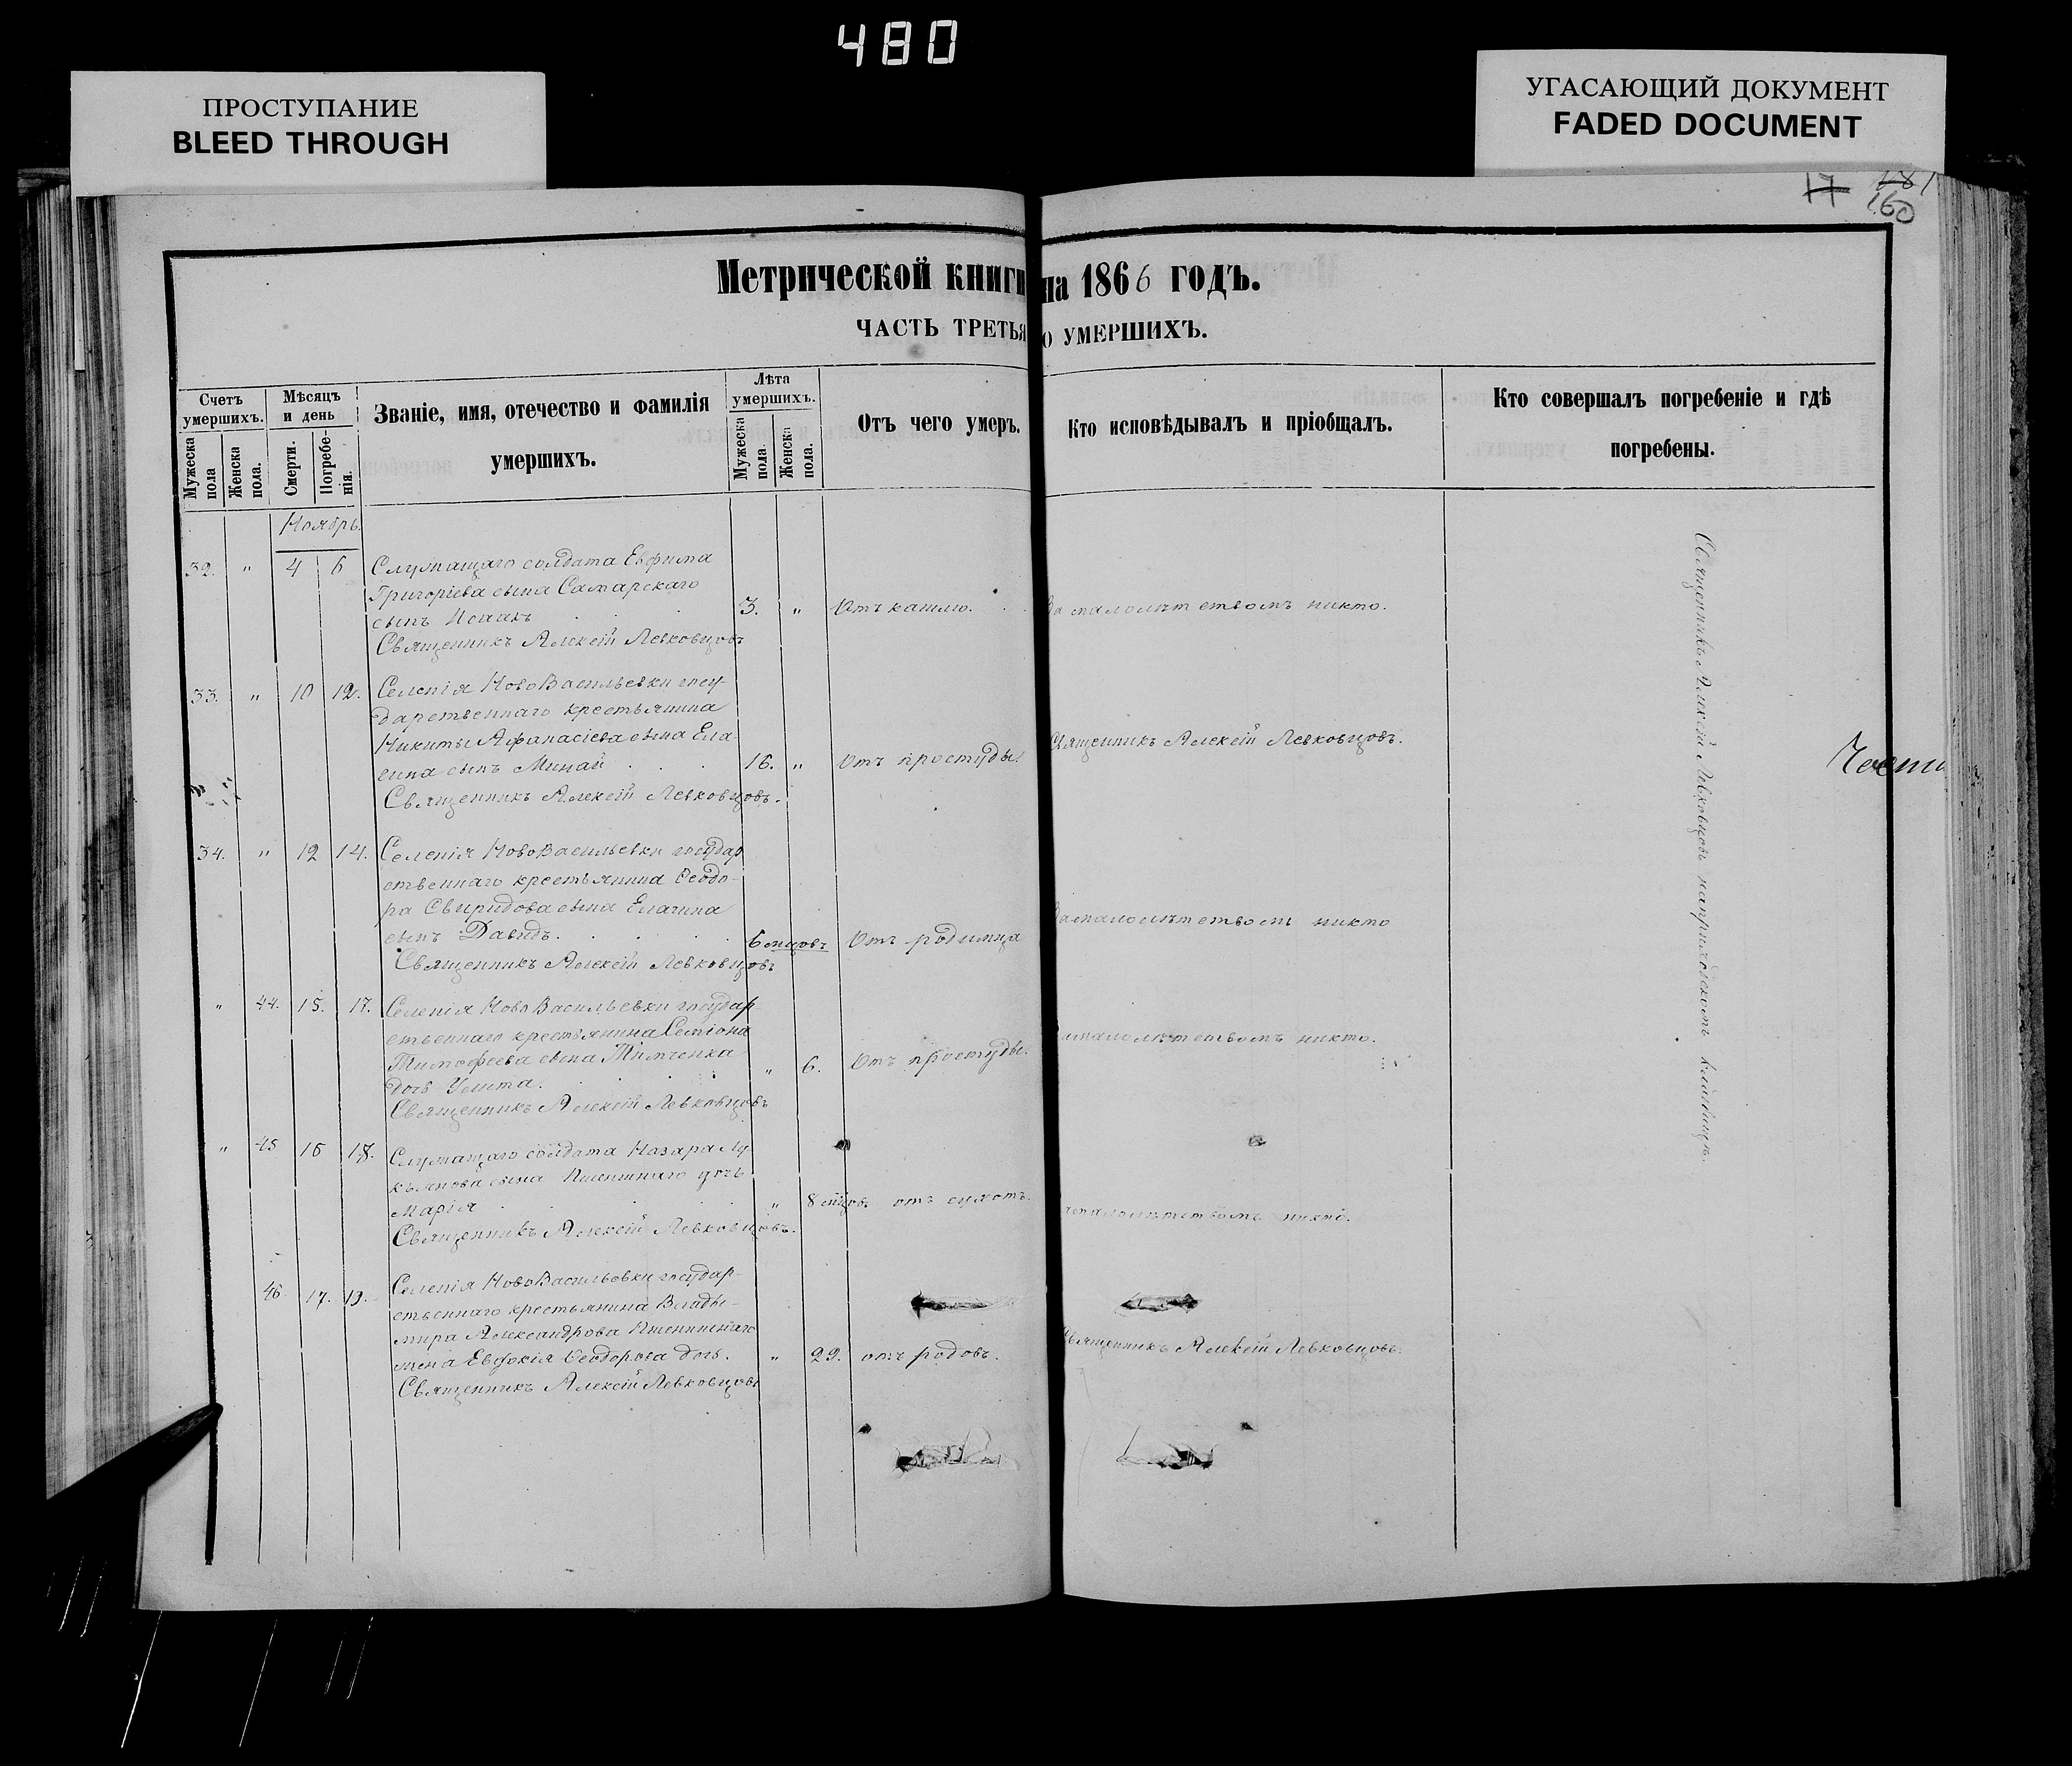 480
ПРОСТУПАНИЕ
BLEED THROUGH
УГАСАЮЩИЙ ДОКУМЕНТ
FADED DOCUMENT
17 181
160
Метрической книги на 1866 годъ.
ЧАСТЬ ТРЕТЬЯ О УМЕРШИХЪ.
Счетъ умершихъ.
Мужеска пола
Женска пола.
Мѣсяцъ и день
Смерти.
Погребенія.
Званіе, имя, отечество и фамилія
умершихъ.
Лѣта умершихъ.
Мужеска пола.
Женска пола.
Отъ чего умеръ.
Кто исповѣдывалъ и пріобщалъ.
Кто совершалъ погребеніе и гдѣ
погребены.
Ноябрь.
32. " 4 6 Служащаго солдата Евфима
Григоріева сына Самарскаго
сынъ Исаакъ 3. " Отъ кашлю. За малолѣтствомъ никто.
Священникъ Алексій Левковцовъ
33. " 10 12. Селенія НовоВасильевки госу-
дарственнаго крестьянина
Никиты Афанасіева сына Ела-
гина сынъ Минай 16. " Отъ простуды. Священникъ Алексій Левковцовъ.
Священникъ Алексій Левковцовъ.
34. " 12 14. Селенія НовоВасильевки государ
ственнаго крестьянина Ѳеодо-
ра Свиридова сына Елагина
сынъ Давидъ. 6 мцовъ Отъ родимца За малолѣтствомъ никто
Священникъ Алексій Левковцовъ
" 44. 15. 17. Селенія НовоВасильевки государ
ственнаго крестьянина Семіона
Тимофеева сына
дочь 6. Отъ простуды. малолѣтствомъ никто.
Священникъ Алексій Левковцовъ
" 45 16 18. Служащаго солдата Назара Лу
кьянова сына Пшеничнаго дочь
Марія " 8 мцовъ отъ сухотъ. малолѣтствомъ никто.
Священникъ Алексій Левковцовъ.
46 17. 19. Селенія НовоВасильевки государ-
ственнаго крестьянина Влады-
мира Александрова Пшеничнаго
жена Евдокія Ѳеодорова дочь. " 29. отъ родовъ. Священникъ Алексій Левковцовъ.
Священникъ Алексій Левковцовъ
Священникъ Алексій Левковцовъ на приходскомъ кладбищѣ.